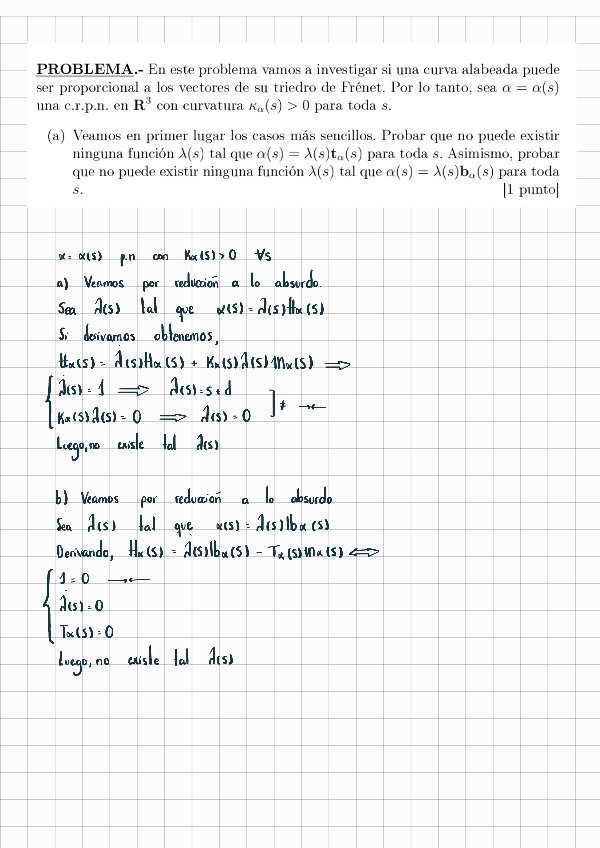 PROBLEMA.- En este problema vamos a investigar si una curva alabeada puede
ser proporcional a los vectores de su triedro de Frénet. Por lo tanto, sea α = α(s)
una c.r.p.n. en R³ con curvatura κ_α(s) > 0 para toda s.
(a) Veamos en primer lugar los casos más sencillos. Probar que no puede existir
ninguna función λ(s) tal que α(s) = λ(s)t_α(s) para toda s. Asimismo, probar
que no puede existir ninguna función λ(s) tal que α(s) = λ(s)b_α(s) para toda
s. [1 punto]
α = α(s) p.n con K_α(s) > 0 ∀s
a) Veamos por reducción a lo absurdo.
Sea λ(s) tal que α(s) = λ(s)𝕥_α(s)
Si derivamos obtenemos,
𝕥_α(s) = λ̇(s)𝕥_α(s) + K_α(s)λ(s)𝕟_α(s) ⟹
λ̇(s) = 1 ⟹ λ(s) = s + d
K_α(s)λ(s) = 0 ⟹ λ(s) = 0 ] ≠ →←
Luego, no existe tal λ(s)
b) Veamos por reducción a lo absurdo
Sea λ(s) tal que α(s) = λ(s)𝕓_α(s)
Derivando, 𝕥_α(s) = λ̇(s)𝕓_α(s) − τ_α(s)𝕟_α(s) ⟺
1 = 0 →←
λ̇(s) = 0
τ_α(s) = 0
Luego, no existe tal λ(s)